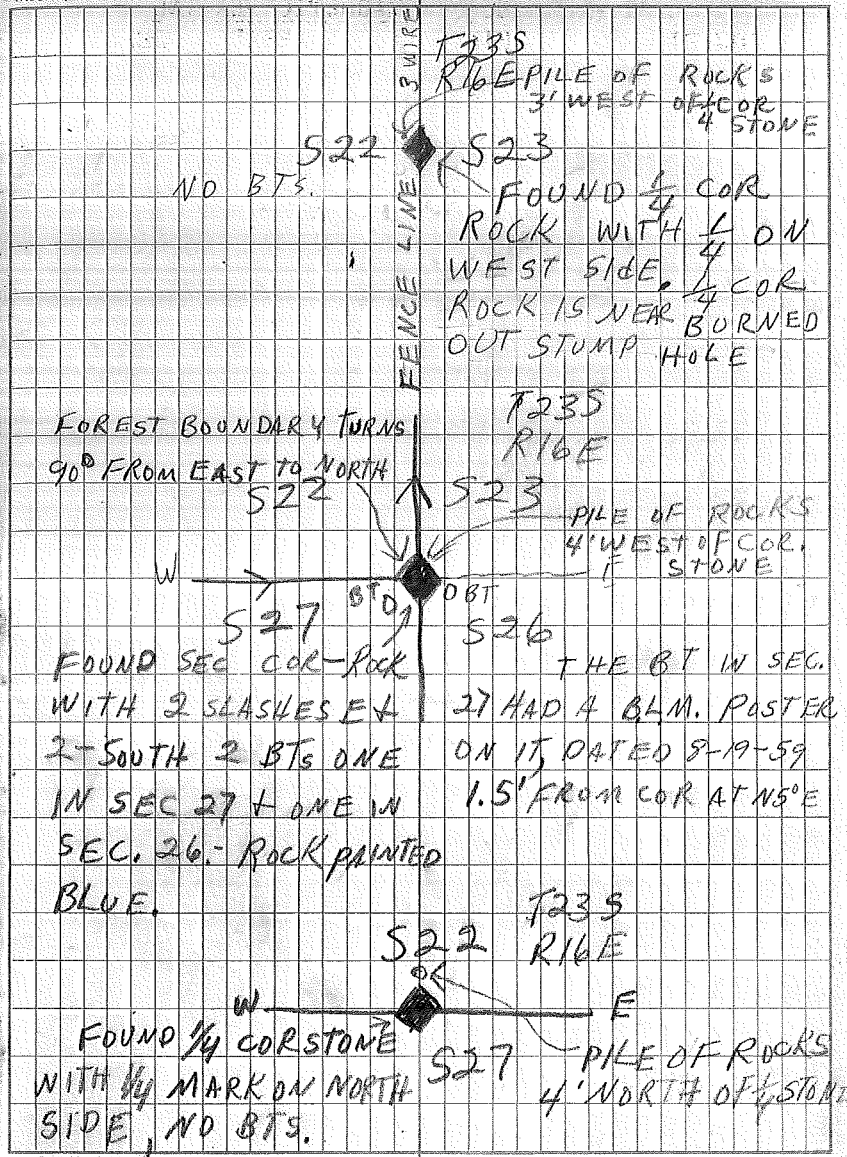 3 WIRE
FENCE LINE
T23S
R16E PILE OF ROCKS
3' WEST OF 1/4 COR
STONE
S22
S23
NO BTS.
FOUND 1/4 COR
ROCK WITH 1/4 ON
WEST SIdE. 1/4 COR
ROCK IS NEAR BURNED
OUT STUMP HOLE
FOREST BOUNDARY TURNS
90° FROM EAST TO NORTH
T23S
R16E
S22
S23
PILE OF ROCKS
4' WEST OF COR.
STONE
W
E
BT
BT
S27
S26
FOUND SEC COR-ROCK
WITH 2 SLASHES E &
2-SOUTH 2 BTs ONE
IN SEC 27 & ONE IN
SEC. 26.- ROCK PAINTED
BLUE.
THE BT IN SEC.
27 HAD A B.L.M. POSTER
ON IT, DATED 8-19-59
1.5' FROM COR AT N5°E
T23S
R16E
S22
W
E
S27
FOUND 1/4 COR STONE
WITH 1/4 MARK ON NORTH
SIDE, NO BTS.
PILE OF ROCKS
4' NORTH OF 1/4 STONE